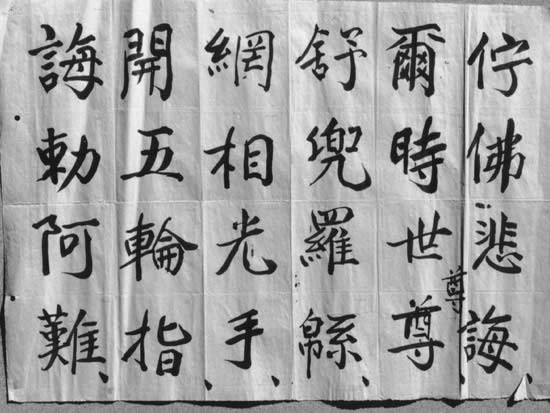 佇佛悲誨、
尊
爾時世尊、
舒兜羅緜、
網相光手、
開五輪指、
誨勅阿難、